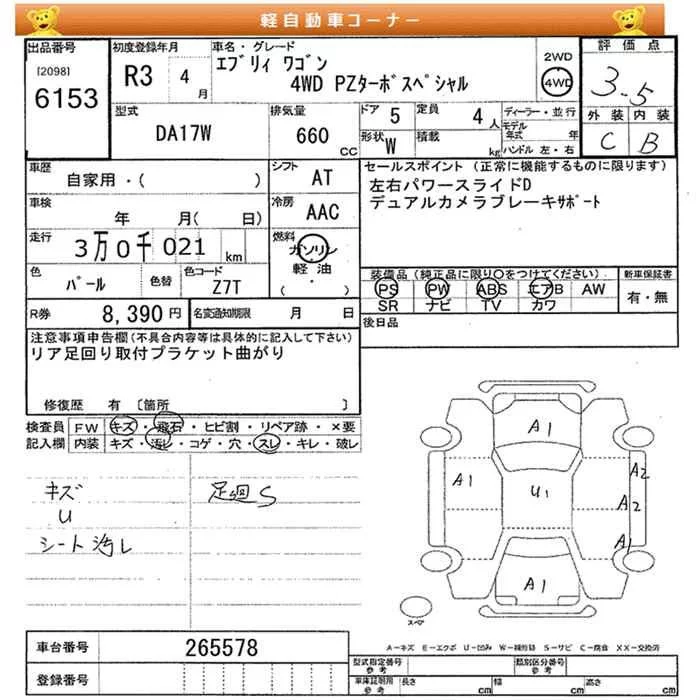 軽自動車コーナー
出品番号 [2098] 6153
初度登録年月 R3 4月
車名・グレード エブリィ ワゴン 4WD PZターボスペシャル
2WD 4WD
評価点 3.5
外装 内装
C B
型式 DA17W
排気量 660 CC
ドア 5
定員 4人
形状 W
積載 kg
ディーラー・並行
モデル年式 年
ハンドル 左・右
車歴 自家用・( )
シフト AT
車検 年 月( 日)
冷房 AAC
走行 3万0千021 km
燃料 ガソリン・軽油・( )
色 パール 色替
色コード Z7T
R券 8,390円
名変通知期限 月 日
セールスポイント (正常に機能するものに限ります)
左右パワースライドD
デュアルカメラブレーキサポート
装備品(純正品に限り○をつけてください)
PS PW ABS エアB AW
SR ナビ TV カワ
新車保証書
有・無
後日品
注意事項申告欄(不具合内容等は具体的に記入して下さい)
リア足回り取付ブラケット曲がり
修復歴 有 〔箇所 〕
検査員記入欄
FW キズ・飛石・ヒビ割・リペア跡・×要
内装 キズ・汚レ・コゲ・穴・スレ・キレ・破レ
キズ
U
シート汚レ
足廻S
A1
A1 U1 A2
A2
A1
A1
スペア
A−キズ E−エクボ U−凹み W−補修跡 S−サビ C−腐食 XX−交換済
車台番号 265578
登録番号
型式指定番号 参考
類別区分番号 参考
車庫証明用 参考 長さ cm 幅 cm 高さ cm